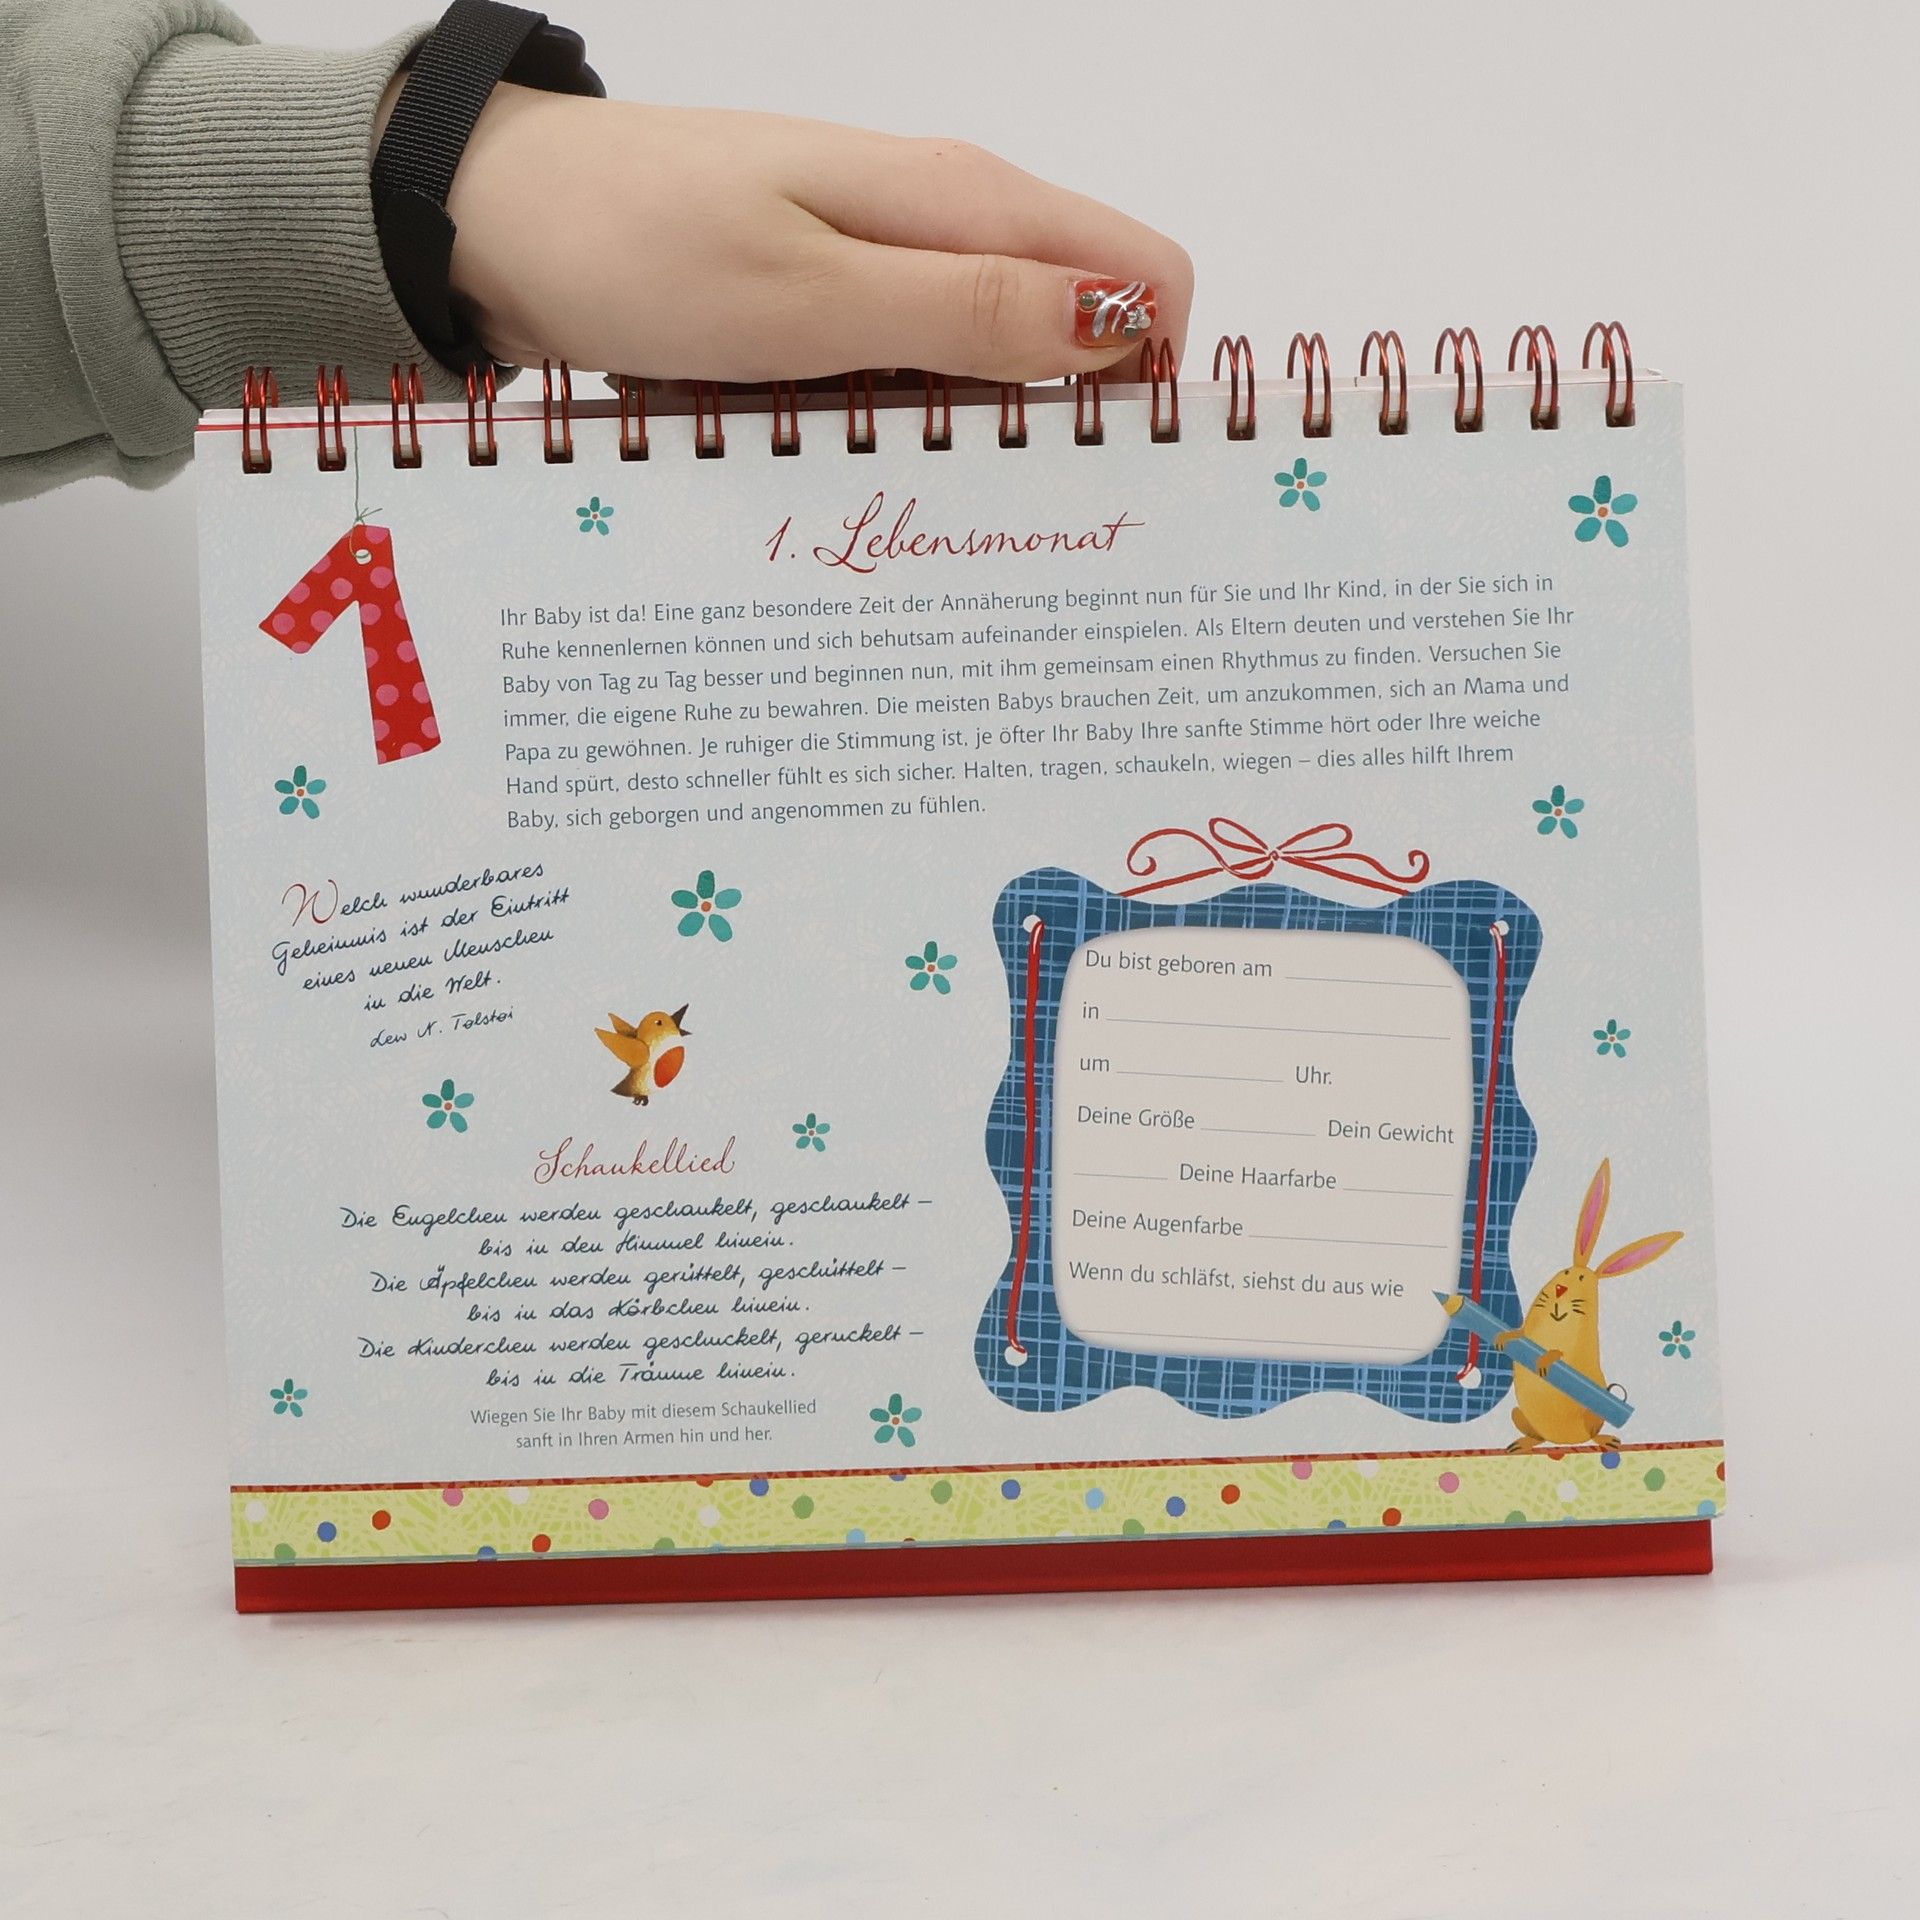 1
1. Lebensmonat
Ihr Baby ist da! Eine ganz besondere Zeit der Annäherung beginnt nun für Sie und Ihr Kind, in der Sie sich in
Ruhe kennenlernen können und sich behutsam aufeinander einspielen. Als Eltern deuten und verstehen Sie Ihr
Baby von Tag zu Tag besser und beginnen nun, mit ihm gemeinsam einen Rhythmus zu finden. Versuchen Sie
immer, die eigene Ruhe zu bewahren. Die meisten Babys brauchen Zeit, um anzukommen, sich an Mama und
Papa zu gewöhnen. Je ruhiger die Stimmung ist, je öfter Ihr Baby Ihre sanfte Stimme hört oder Ihre weiche
Hand spürt, desto schneller fühlt es sich sicher. Halten, tragen, schaukeln, wiegen – dies alles hilft Ihrem
Baby, sich geborgen und angenommen zu fühlen.
Welch wunderbares
Geheimnis ist der Eintritt
eines neuen Menschen
in die Welt.
Lew N. Tolstoi
Schaukellied
Die Engelchen werden geschaukelt, geschaukelt –
bis in den Himmel hinein.
Die Äpfelchen werden gerüttelt, geschüttelt –
bis in das Körbchen hinein.
Die Kinderchen werden geschuckelt, geruckelt –
bis in die Träume hinein.
Wiegen Sie Ihr Baby mit diesem Schaukellied
sanft in Ihren Armen hin und her.
Du bist geboren am
in
um Uhr.
Deine Größe Dein Gewicht
Deine Haarfarbe
Deine Augenfarbe
Wenn du schläfst, siehst du aus wie